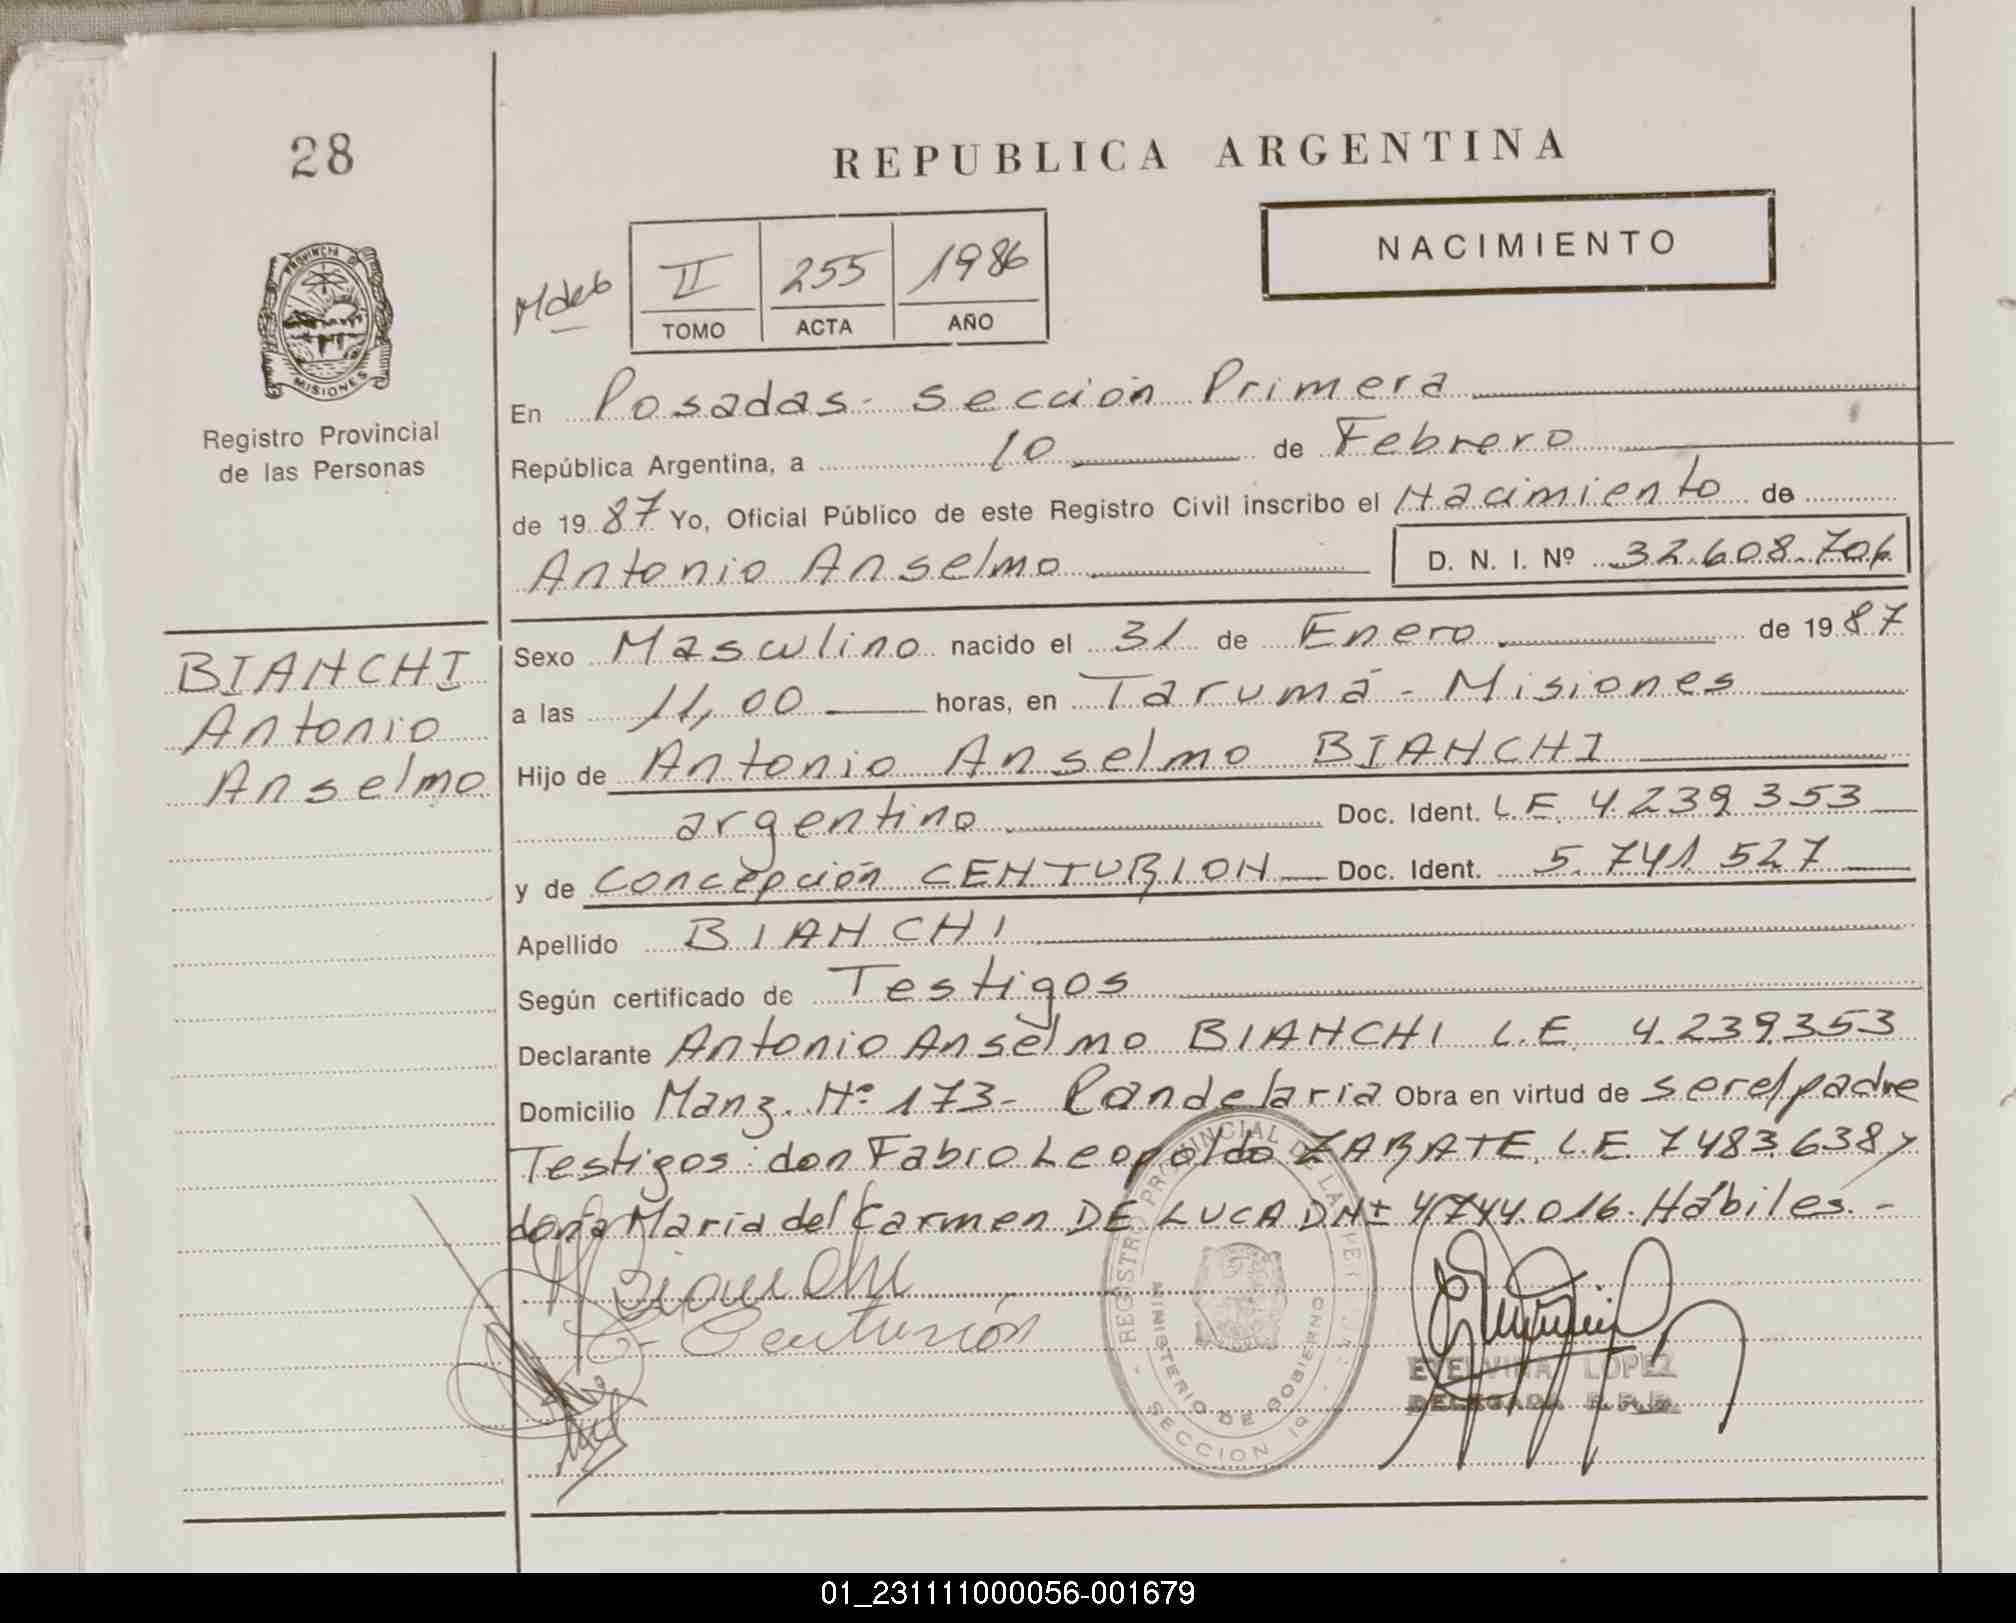 28
REPUBLICA ARGENTINA
NACIMIENTO
II 255 1986
TOMO ACTA AÑO
PROVINCIA DE
MISIONES
Registro Provincial
de las Personas
En Posadas - sección Primera
República Argentina, a 10 de Febrero
de 1987 Yo, Oficial Público de este Registro Civil inscribo el Nacimiento de
Antonio Anselmo D. N. I. Nº 32.608.706
BIANCHI
Antonio
Anselmo
Sexo Masculino nacido el 31 de Enero de 1987
a las 11,00 horas, en Tarumá - Misiones
Hijo de Antonio Anselmo BIANCHI
argentino Doc. Ident. L.E. 4.239.353
y de Concepción CENTURION Doc. Ident. 5.741.527
Apellido BIANCHI
Según certificado de Testigos
Declarante Antonio Anselmo BIANCHI L.E. 4.239.353
Domicilio Manz. Nº 173 - Candelaria Obra en virtud de ser el padre
Testigos: don Fabio Leopoldo ZARATE, L.E. 7483.638 y
doña María del Carmen DE LUCA DNI 4744.016. Hábiles. -
Bianchi
Centurión
REGISTRO PROVINCIAL DE LA
MINISTERIO DE GOBIERNO
SECCION 1º
ETELVINA LOPEZ
DELEGADA R.P.P.
01_231111000056-001679